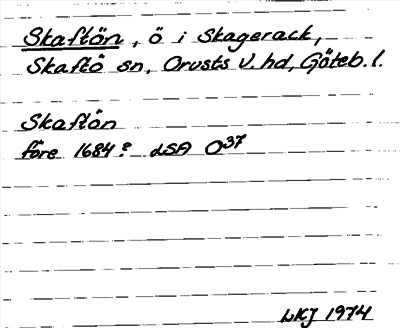 Skaftön, ö i Skagerack,
Skaftö sn, Orusts V. hd, Göteb. l.
Skaftön
före 1684? LSA O37
LKJ 1974